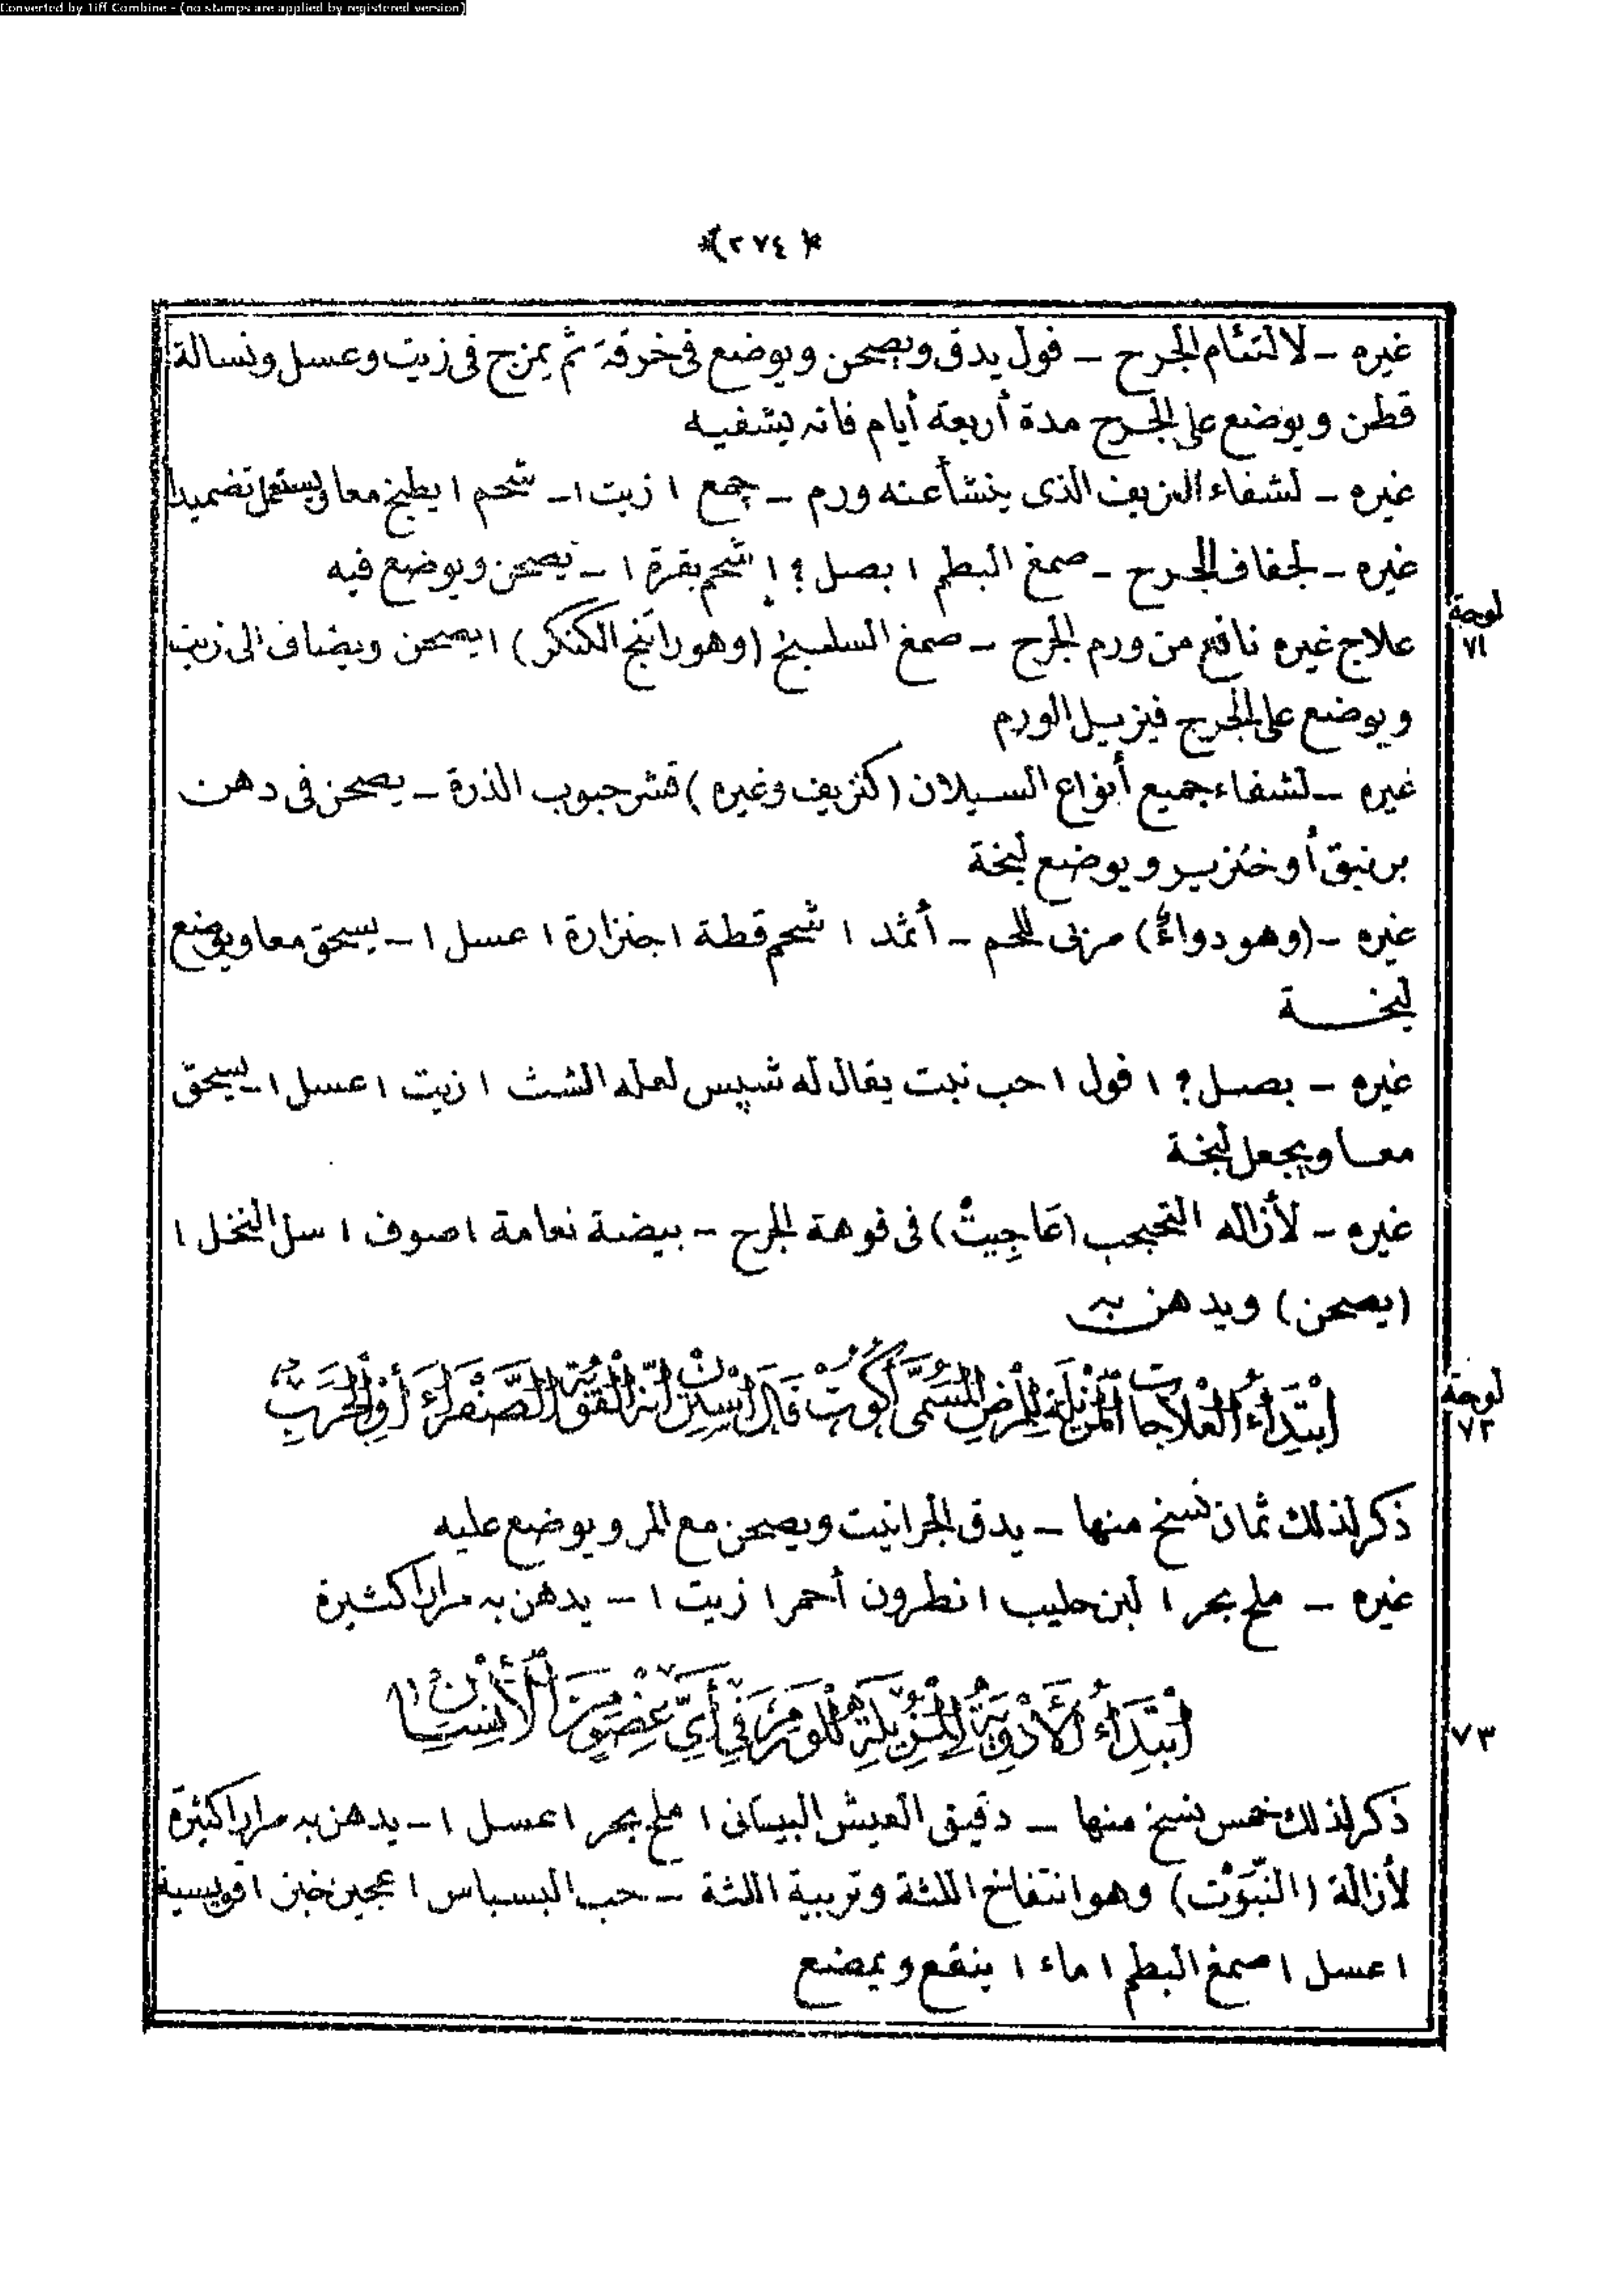 Converted by Tiff Combine - (no stamps are applied by registered version)
*( ٢٧٤ )*
غيره - لالتئام الجرح - فول يدق ويصحن ويوضع فى خرقة ثم يمزج فى زيت وعسل ونسالة
قطن ويوضع على الجرح مدة أربعة أيام فانه يشفيه
غيره - لشفاء النزيف الذى ينشأ عنه ورم - جمع ١ زيت ١ - شحم ١ يطبخ معا ويستعمل تضميدا
غيره - لجفاف الجرح - صمغ البطم ١ بصل ؟ ١ شحم بقرة ١ - يصحن ويوضع فيه
لوحة ٧١
علاج غيره نافع من ورم الجرح - صمغ السلسبخ (وهو راتنج الكنكر) ١ يصحن ويضاف الى زيت
ويوضع على الجرح فيزيل الورم
غيره - لشفاء جميع أنواع السيلان (كنزيف وغيره) قشر حبوب الذرة - يصحن فى دهن
برنيق أو خنزير ويوضع لبخة
غيره - (وهو دواءٌ) مربى للحم - أثمد ١ شحم قطة ١ جنزارة ١ عسل ١ - يسحق معا ويوضع
لبخة
غيره - بصل ؟ ١ فول ١ حب نبت يقال له شپس لعله الشث ١ زيت ١ عسل ١ - يسحق
معا ويجعل لبخة
غيره - لأزاله التحبحب (عَاجِيتْ) فى فوهة الجرح - بيضة نعامة ١ صوف ١ سل النخل ١
(يصحن) ويدهن به
لوحة ٧٢
ابْتِدَاءُ الْعِلَاجَاتِ الْمُزِيلَةِ لِلْمَرَضِ الْمُسَمَّى أَكُوتْ قَالَ ابْسِنْ انه القُوبَة الصَّفْرَاءَ أَوِ الْجَرَبُ
ذكر لذلك ثمان نسخ منها - يدق الجرانيت ويصحن مع المر ويوضع عليه
غيره - ملح بحر ١ لبن حليب ١ نطرون أحمر ١ زيت ١ - يدهن به مرارا كثيرة
٧٣
ابْتِدَاءُ الْأَدْوِيَةِ الْمُزِيلَةِ لِلْوَرَمِ فِى أَىِّ عُضْوٍ مِنَ الْأِنْسَانِ
ذكر لذلك خمس نسخ منها - دقيق العيش البيتانى ١ ملح بحر ١ عسل ١ - يدهن به مرارا كثيرة
لأزالة (النَبَوْت) وهو انتفاخ اللثة وتربية اللثة - حب البسباس ١ عجين خبز ١ قويسية
١ عسل ١ صمغ البطم ١ ماء ١ ينقع ويمضغ